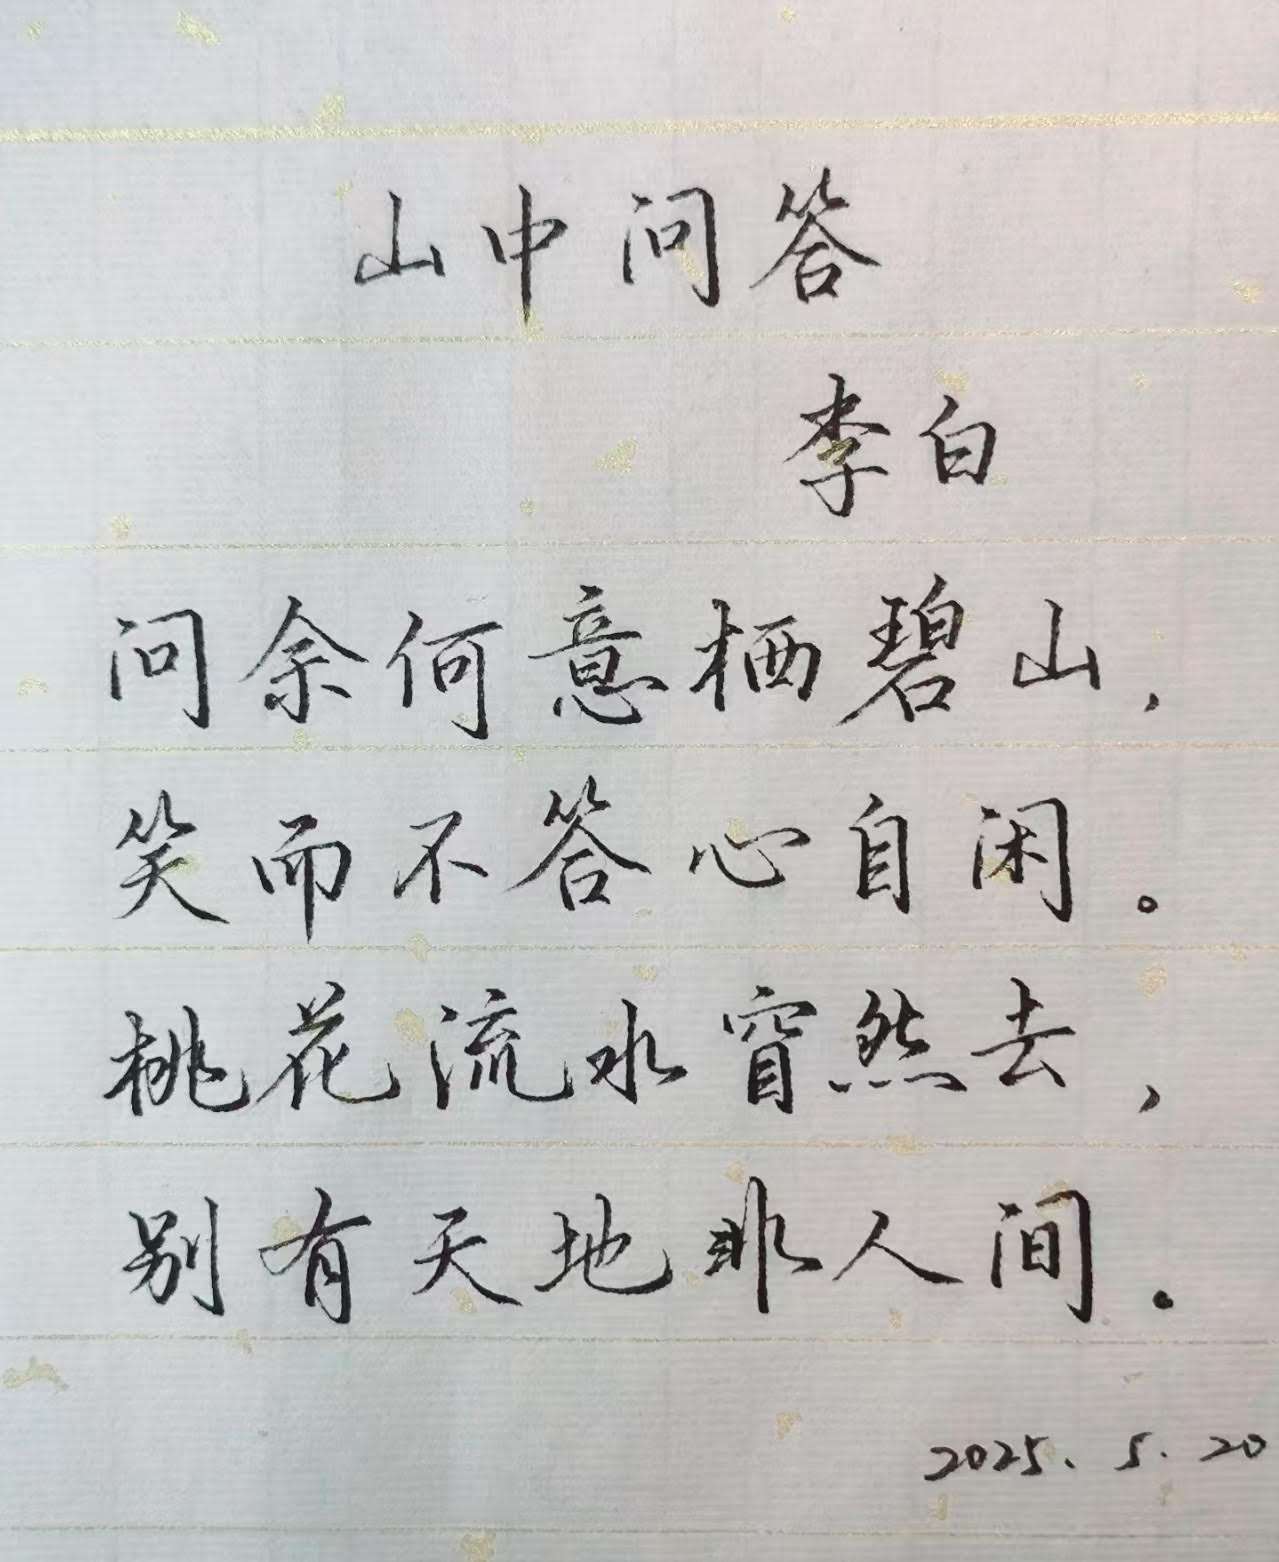 山中问答
李白
问余何意栖碧山，
笑而不答心自闲。
桃花流水窅然去，
别有天地非人间.
2025.5.20